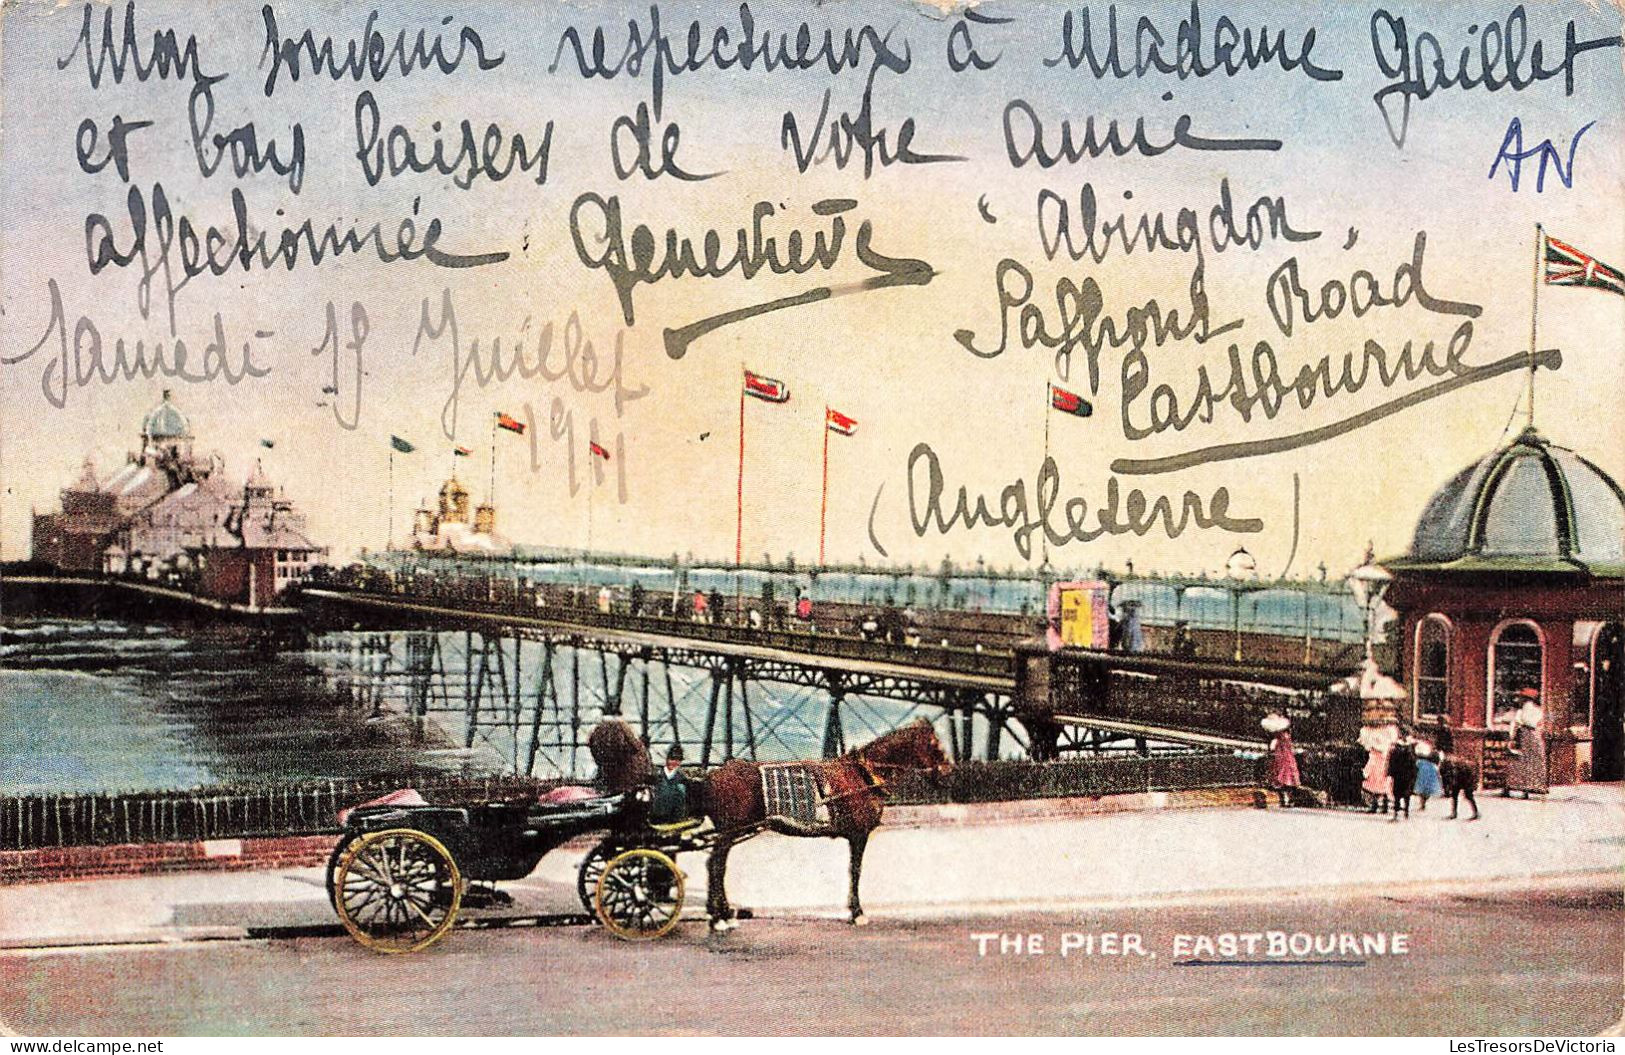 Mon souvenir respectueux à Madame Gaillet
et bons baisers de Votre amie
AN
affectionnée Geneviève "Abingdon,
Saffrons Road
Samedi 15 Juillet
Eastbourne
1911
(Angleterre)
THE PIER, EASTBOURNE
www.delcampe.net
LesTresorsDeVictoria